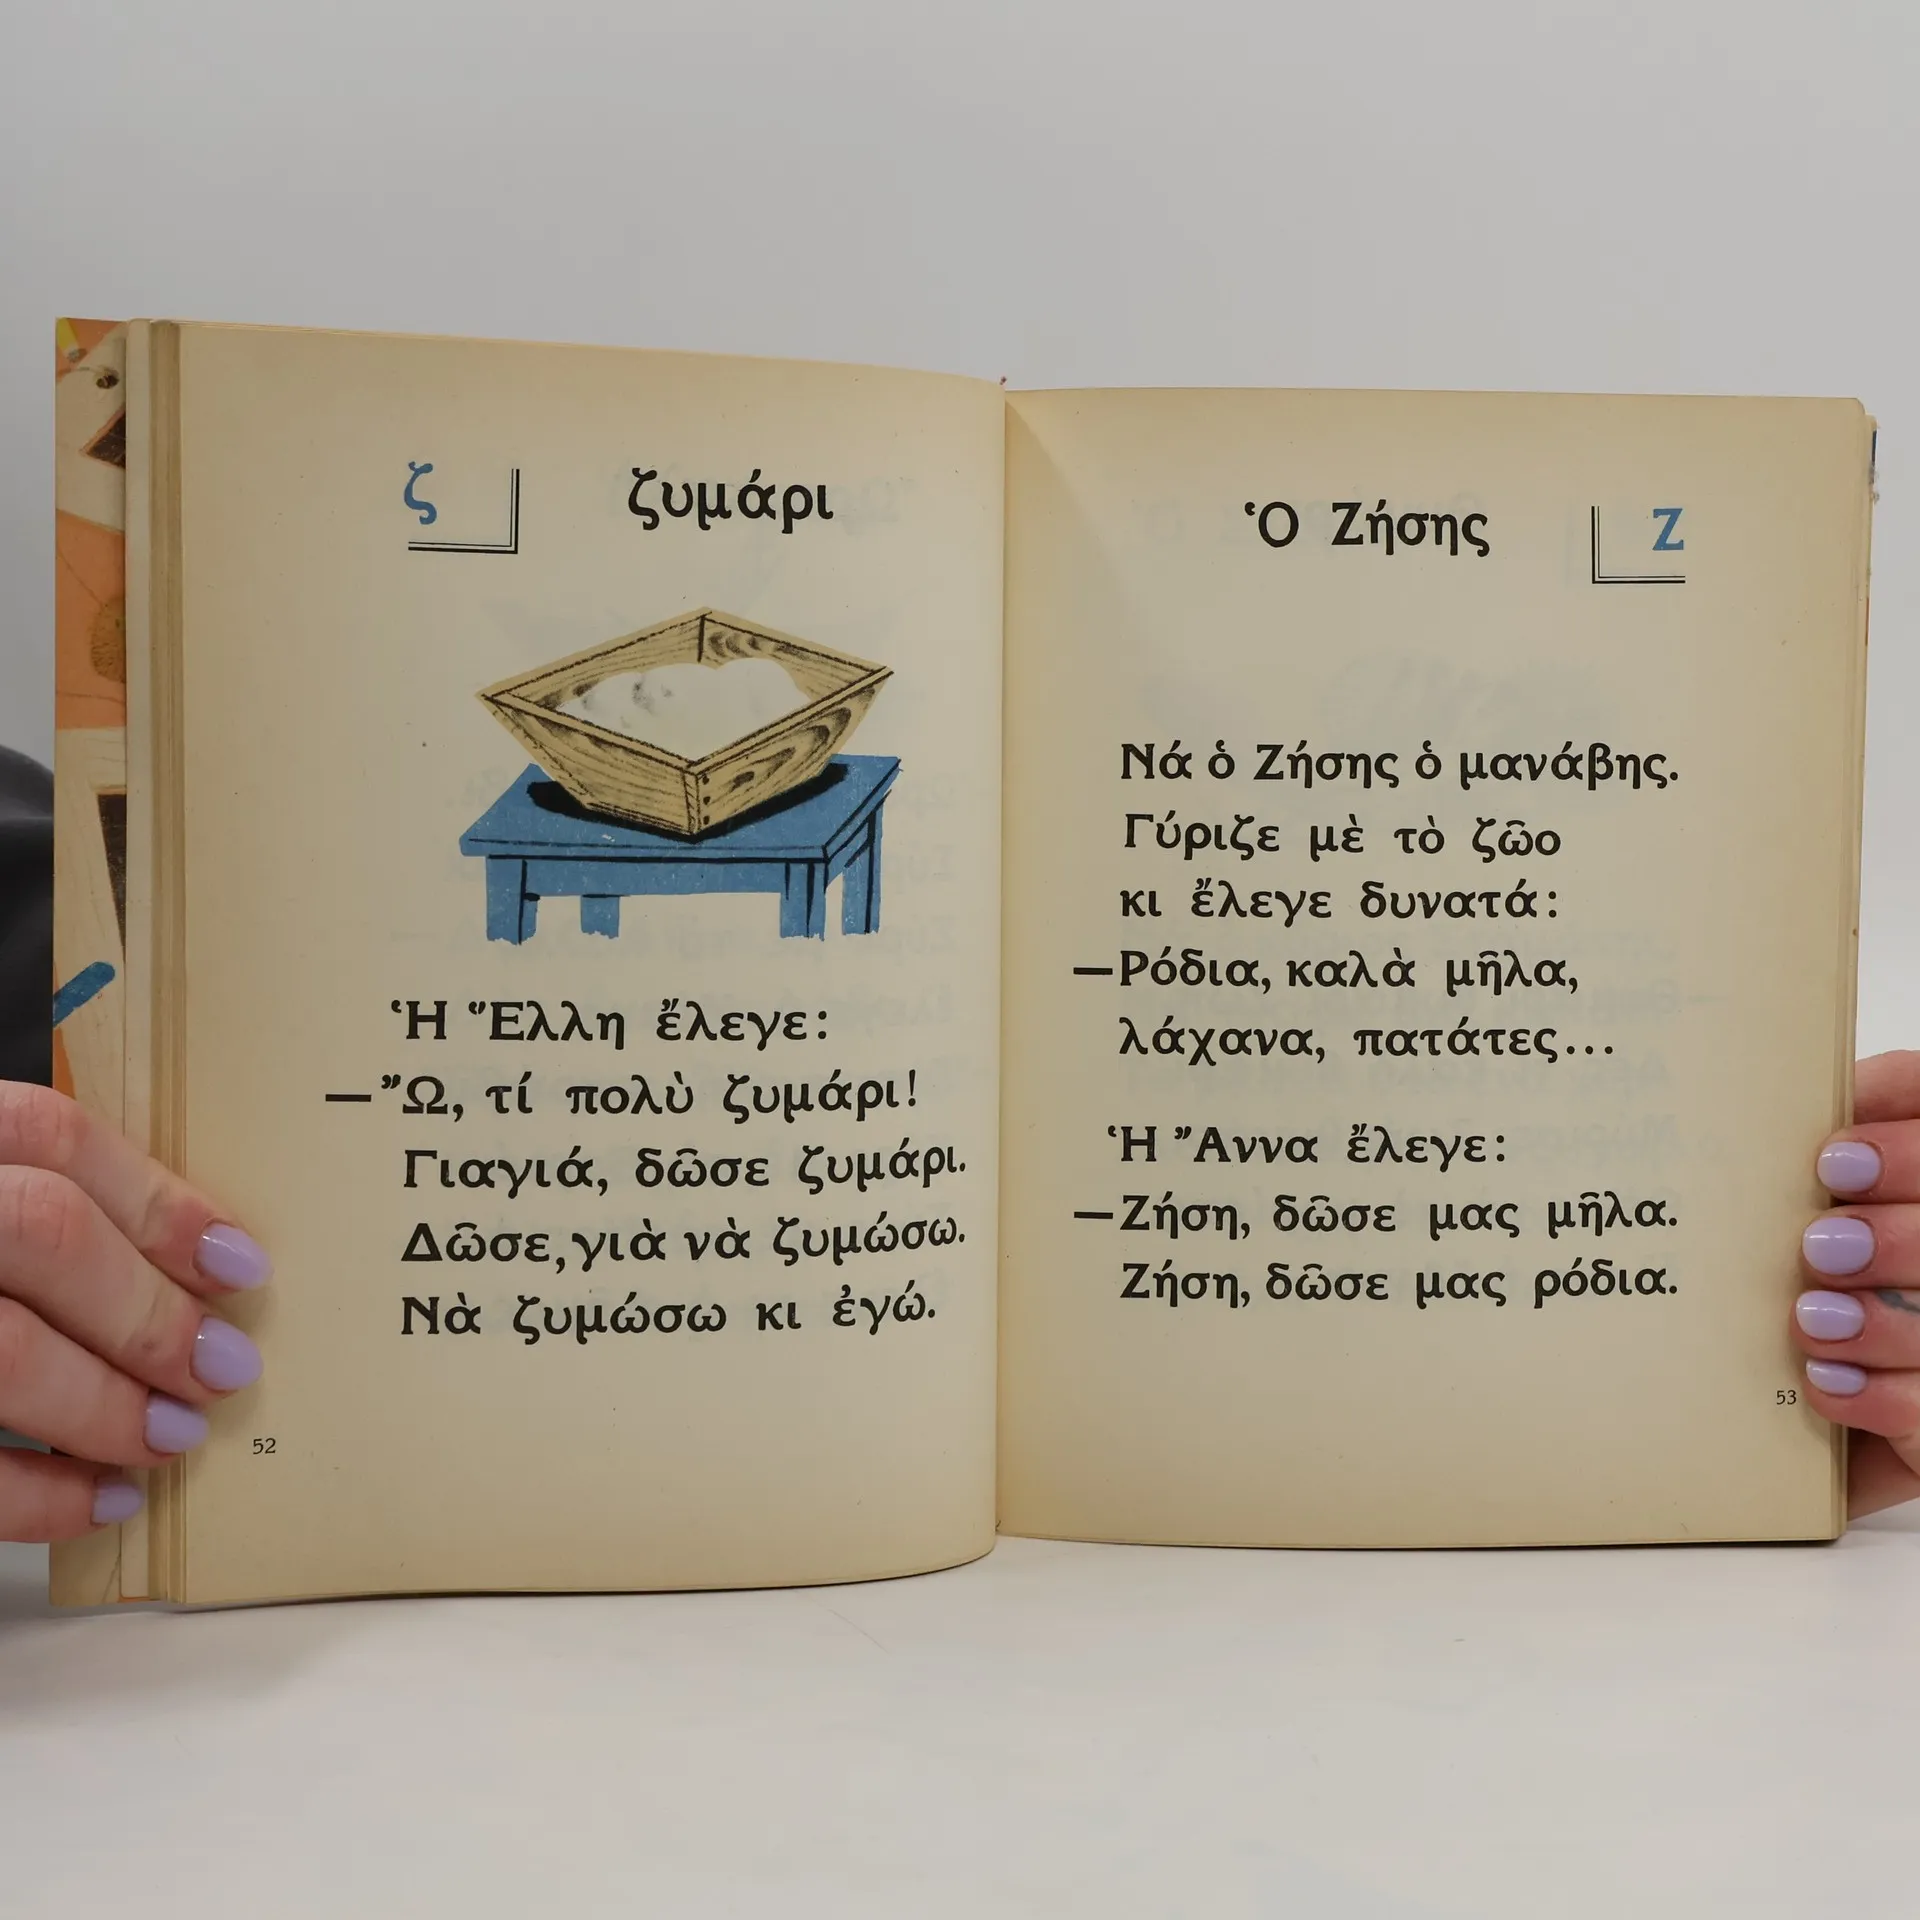 ζ
ζυμάρι
Ἡ Ἕλλη ἔλεγε:
—Ὤ, τί πολὺ ζυμάρι!
Γιαγιά, δῶσε ζυμάρι.
Δῶσε, γιὰ νὰ ζυμώσω.
Νὰ ζυμώσω κι ἐγώ.
52
Ὁ Ζήσης
Ζ
Νά ὁ Ζήσης ὁ μανάβης.
Γύριζε μὲ τὸ ζῶο
κι ἔλεγε δυνατά:
—Ρόδια, καλὰ μῆλα,
λάχανα, πατάτες...
Ἡ Ἄννα ἔλεγε:
—Ζήση, δῶσε μας μῆλα.
Ζήση, δῶσε μας ρόδια.
53